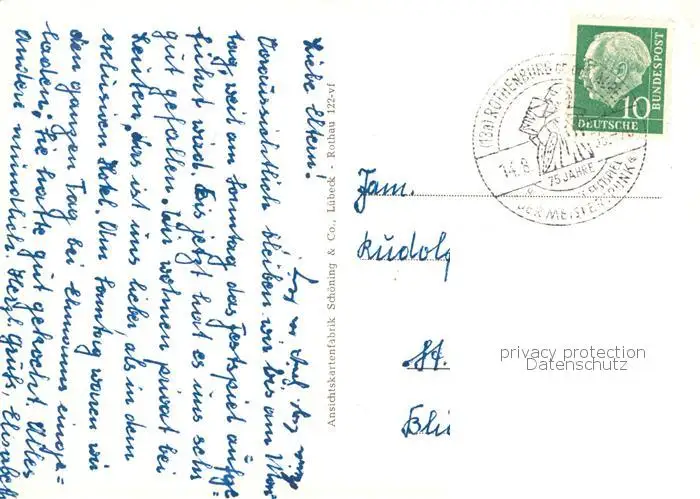 Liebe Eltern!
Voraussichtlich bleiben wir bis am Mon=
tag, weil am Sonntag das Festspiel aufge=
führt wird. Bis jetzt hat es uns sehr
gut gefallen. Wir wohnen privat bei
Leuten, das ist uns lieber als in dem
exclusiven Hotel. Am Sonntag waren wir
den ganzen Tag bei Ehmanns einge=
laden; sie hatte gut gekocht. Alles
Andere mündlich. Herzl. Grüße, Elisabeth
Ansichtskartenfabrik Schöning & Co., Lübeck - Rothau 122-vf
10
DEUTSCHE
BUNDESPOST
(13a) ROTHENBURG
75 JAHRE
DER MEISTERTRUNK
Fam.
Rudolf
St.
privacy protection
Datenschutz